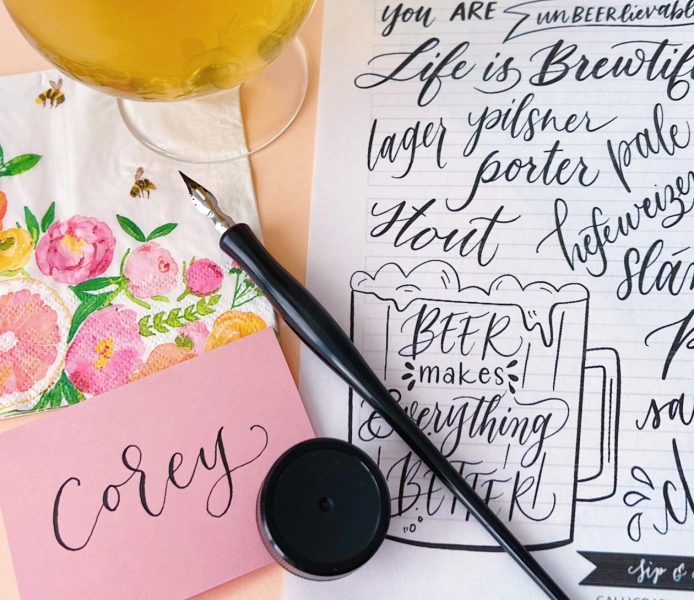 you ARE unBEERlievabl
Life is Brewtif
lager pilsner
porter pale
stout hefeweizen
BEER
makes
Everything
BETTER!
Corey
Sip &